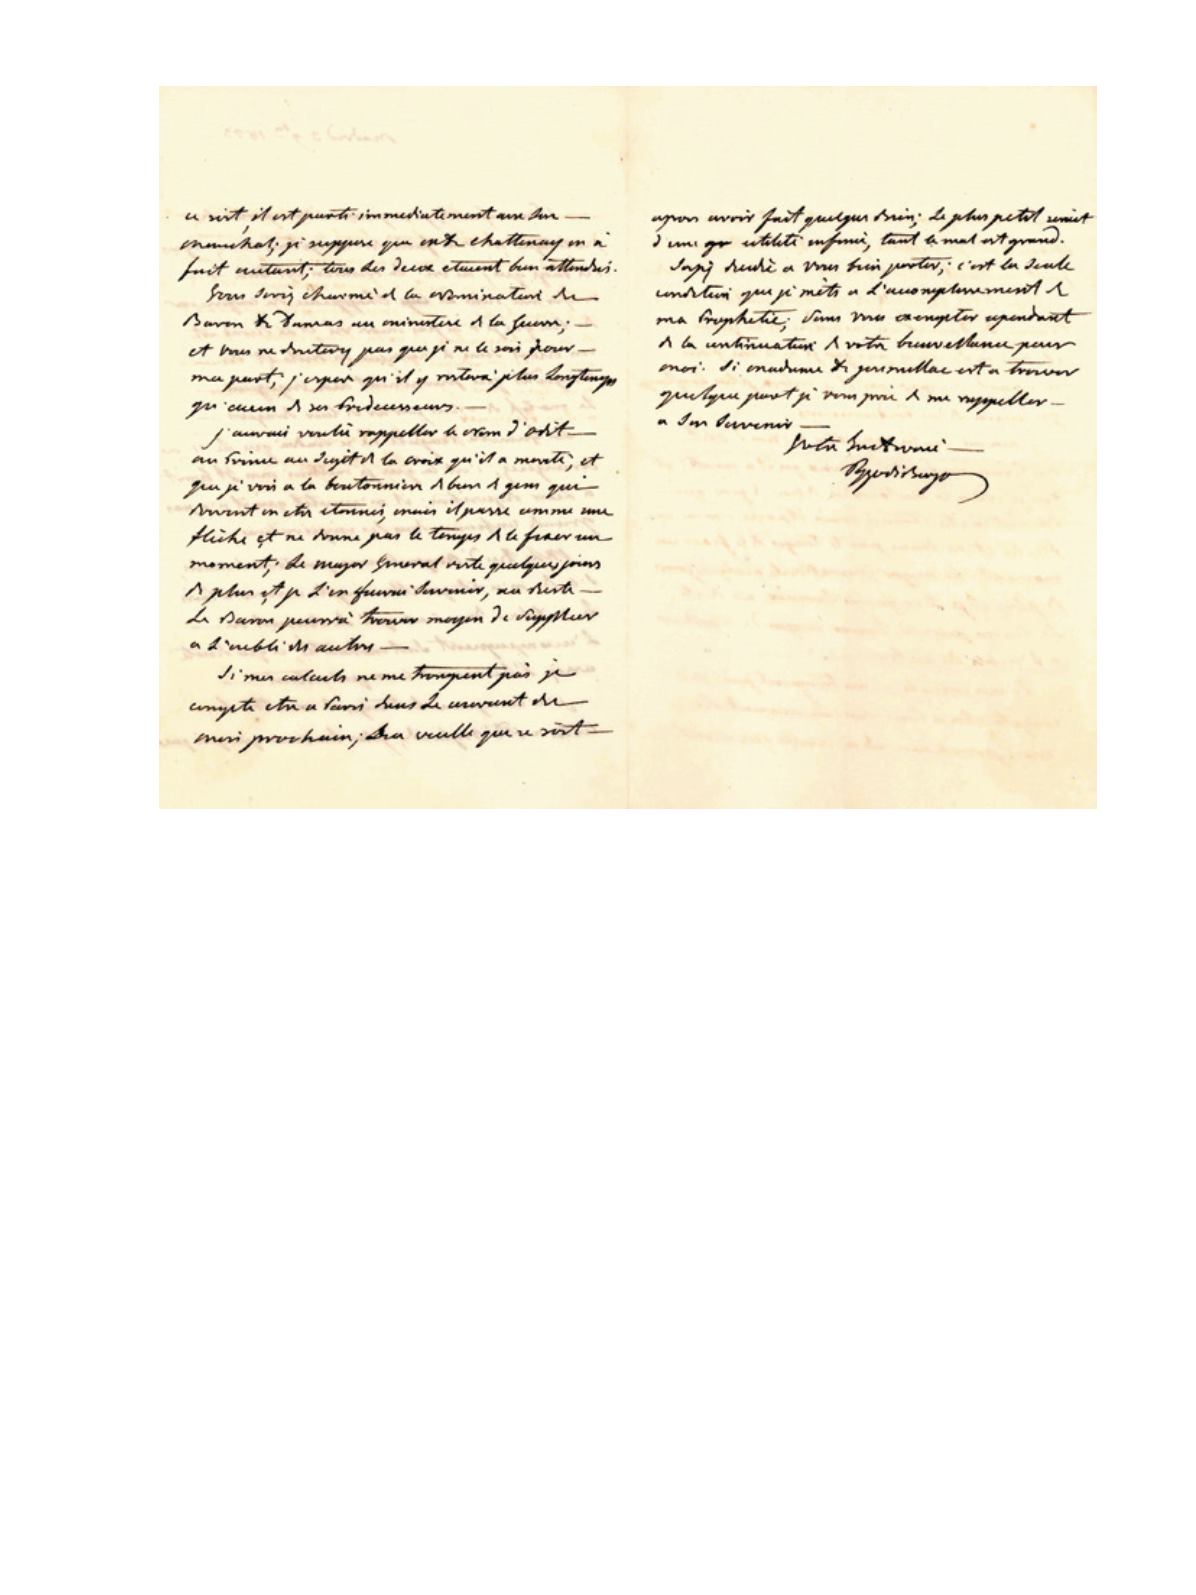 ce soir, il est parti immediatement avec son —
marechal; je suppose que mr de chattenay en à
fait autant; tous les deux etaient bien attendus.
Vous seriez charmé de la nomination du
Baron de Damas au ministere de la Guerre; —
et vous ne douterez pas que je ne le sois pour —
ma part; j'espere qu'il y restera plus longtemps
qu'aucun de ses Predecesseurs. —
j'aurai voulu rappeller le nom d'odet —
au Prince au sujet de la croix qu'il a merité, et
que je vois a la boutonniere de bien de gens qui
doivent en etre etonnés, mais il passe comme une
fléche et ne donne pas le temps de le fixer un
moment; le major General reste quelques jours
de plus et je l'en ferai souvenir, au reste —
Le Baron pourrà trouver moyen de suppléer
a l'oubli des autres —
Si mes calculs ne me trompent pas je
compte etre a Paris dans le courant du
mois prochain; veuille que ce soit —
apres avoir fait quelque bien; le plus petit serait
d'une gr utilité infinie, tant le mal est grand.
a vous bien porter; c'est la seule
condition que je mets a l'accomplissement de
ma Prophetie; sans vous exempter cependant
de la continuation de votre bienveillance pour
moi. Si madame de jumillac est a trouver
quelque part je vous prie de me rappeller —
a son souvenir —
Votre devoué —
Pozzo di Borgo